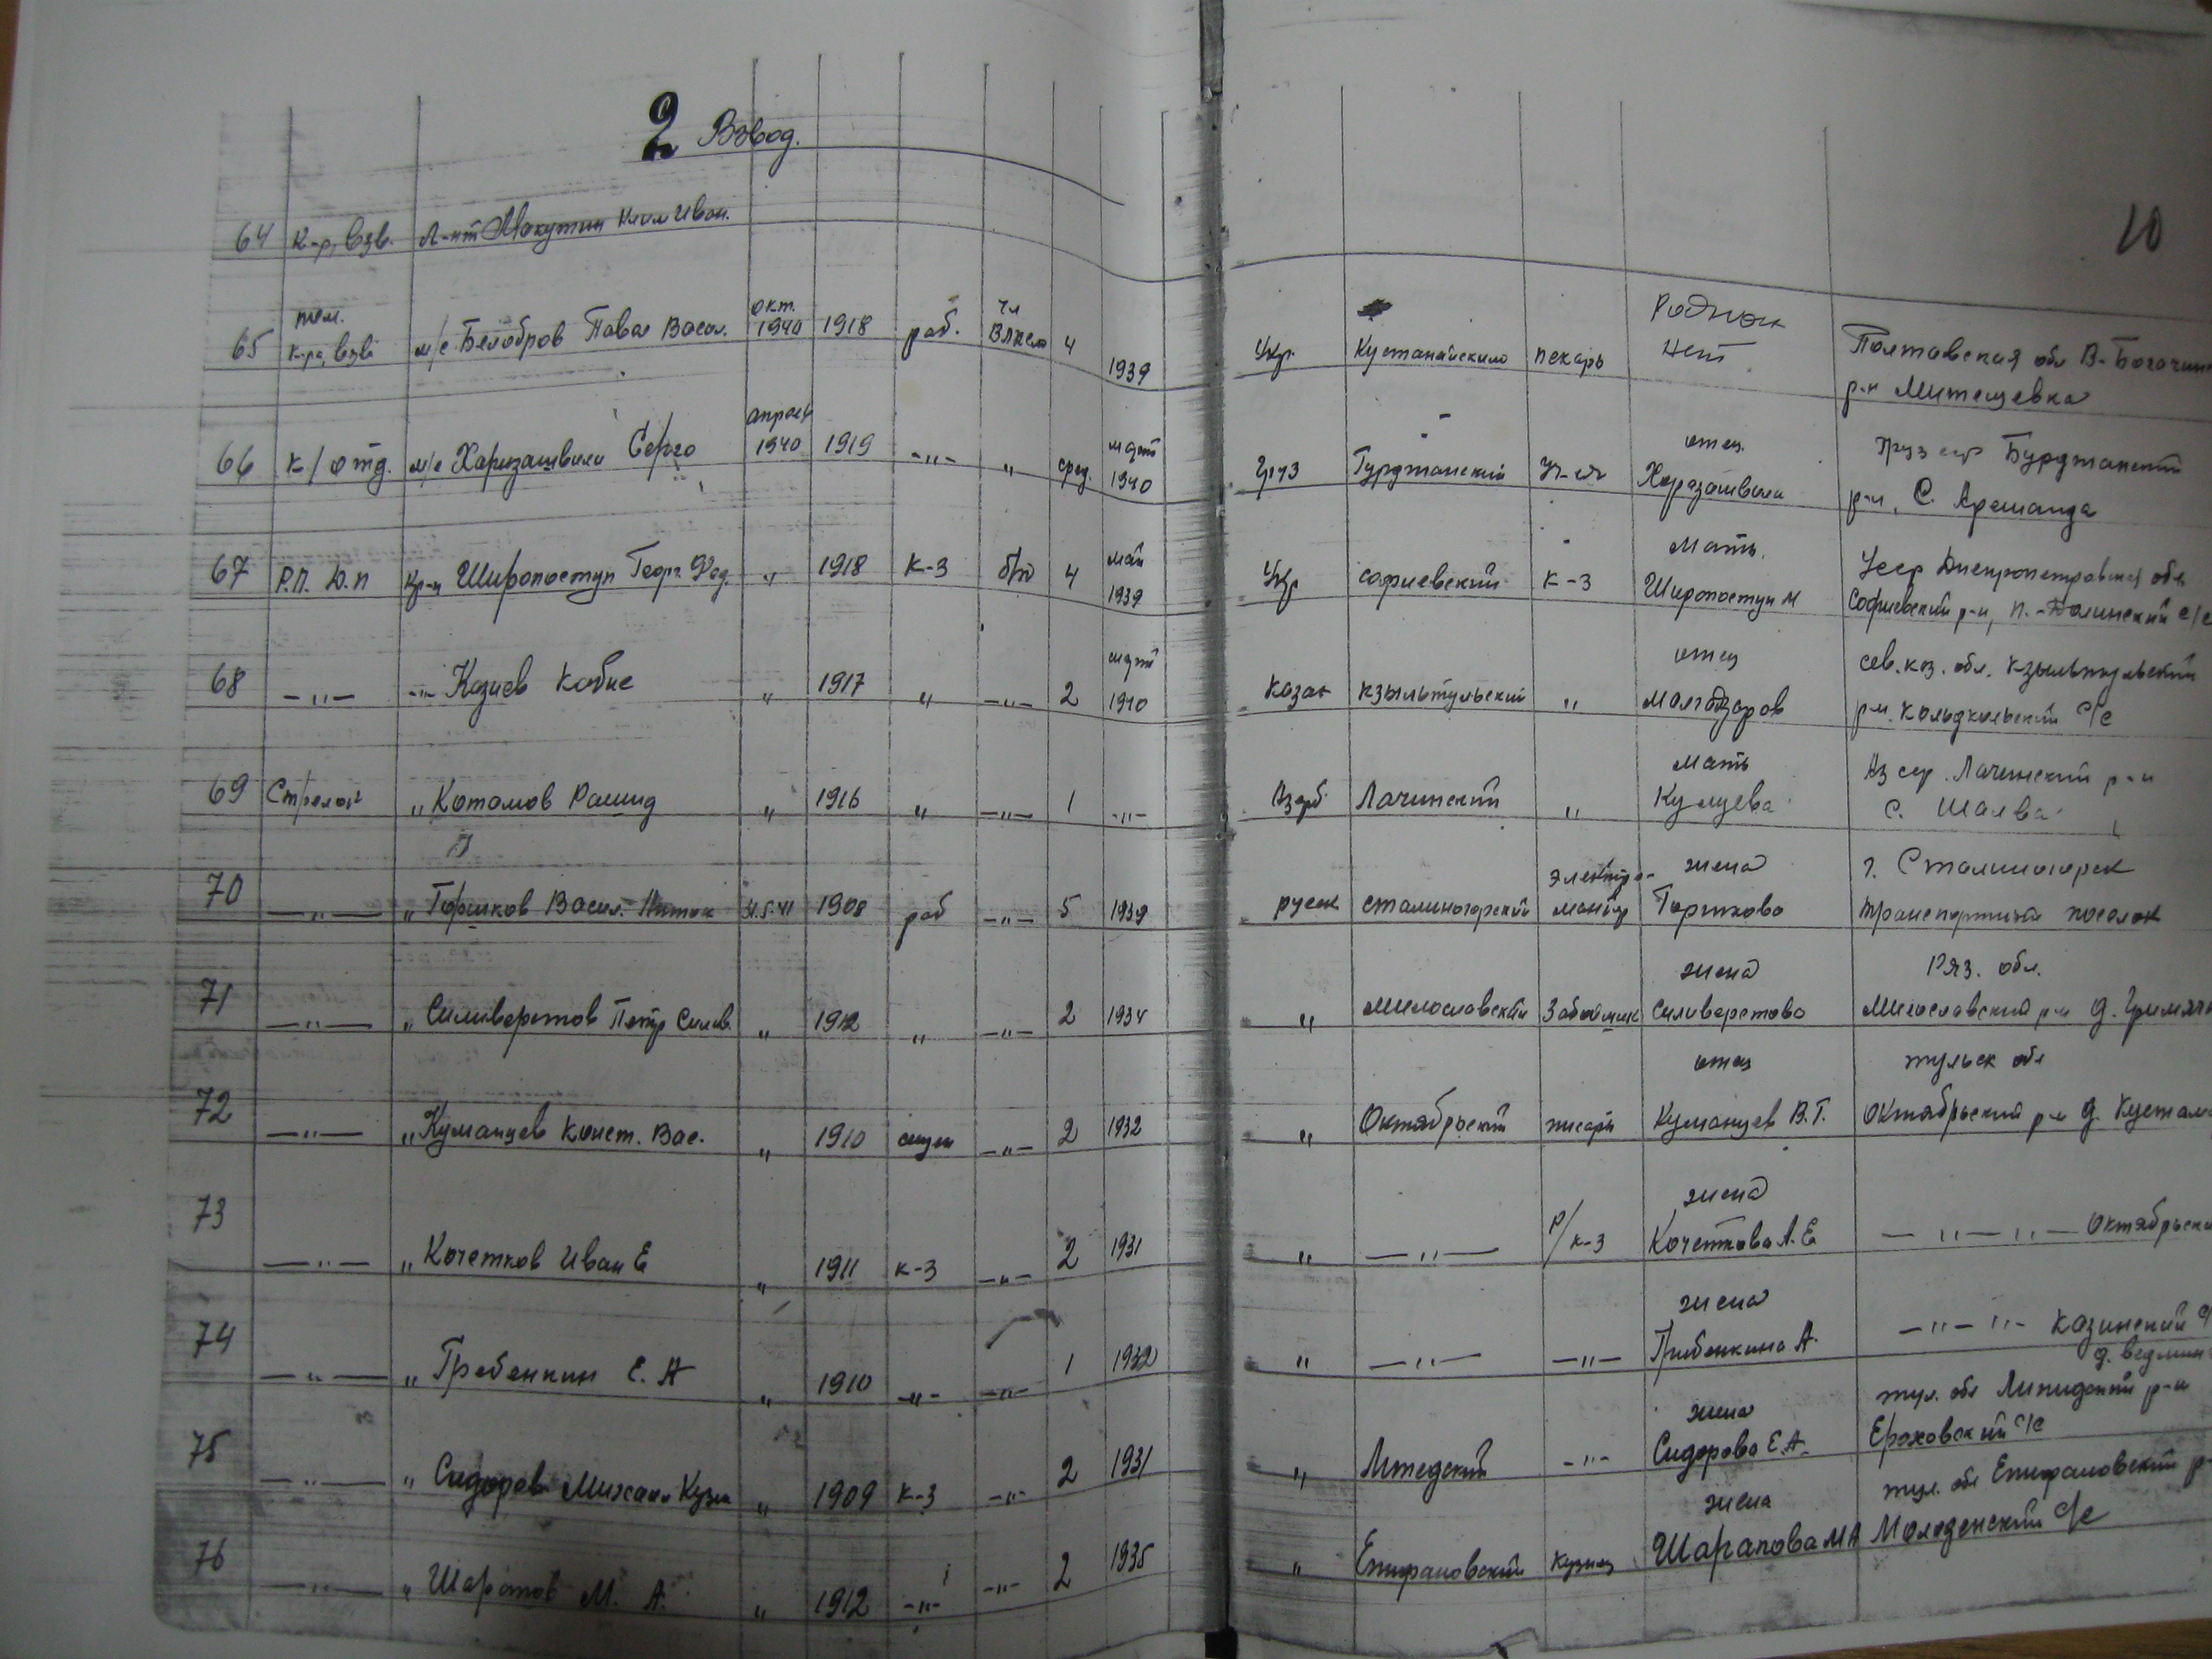 2 Взвод.
10
64 К-р, взв. Л-нт Мокутин Клим Иван.
65 пом. к-ра, взв м/с Белобров Павел Васил. окт. 1940 1918 раб. чл ВЛКСМ 4 1939 Укр. Кустанайского пекарь Родных нет Полтавская обл В-Богачан
р-н Митещевка
66 к/отд. м/с Харизашвили Серго апрель 1940 1919 -"- " сред. март 1940 Груз Гурджанский уч-ся отец Харазашвили Груз сср Бурджанский
р-н, С. Арешанда
67 Р.П. Д.П Кр-ц Широпоступ Георг. Фед. " 1918 К-З б/п 4 май 1939 Укр софиевский К-З Мать. Широпоступ М Усср Днепропетровская обл
Софиевский р-н, с/с
68 -"- -"- Козиев Кобие " 1917 " -"- 2 март 1940 Казах кзылтульский " отец Молгадзаров сев. каз. обл. кзылтульский
р-н. кольдкольский с/с
69 Стрелок " Котомов Рашид " 1916 " -"- 1 -"- Азерб Лачинский " мать Кулуева Аз сср. Лачинский р-н
С. Шалва
70 -"- " Горшков Васил. 31.5.41 1908 раб -"- 5 1939 русск сталиногорский электро-монтер жена Горшкова г. Сталиногорск
транспортный поселок
71 -"- " Силиверстов Петр Силив. " 1912 " -"- 2 1934 " Милославский Забойщик жена Силиверстова Ряз. обл.
Милославский р-н д.
72 -"- " Куманцев Конст. Вас. " 1910 служ -"- 2 1932 " Октябрьский писарь отец Куманцев В.Г. тульск обл
Октябрьский р-н д.
73 -"- " Кочетков Иван Е " 1911 к-з -"- 2 1931 " -"- р/к-з жена Кочеткова А.Е -"-"- Октябрьски
74 -"- " Гребенкин Е. А " 1910 -"- -"- 1 1932 " -"- -"- жена Грибенкина А. -"-"- Казинский
д. ведмин
75 -"- " Сидоров Михаил Кузм " 1909 к-з -"- 2 1931 " -"- жена Сидорова Е.А. тул. обл р-н
Ероховский с/с
76 -"- " Шарапов М. А. " 1912 -"- -"- 2 1935 " Епифановский кузнец жена Шарапова МА тул. обл Епифановский р-
Молоденский с/с